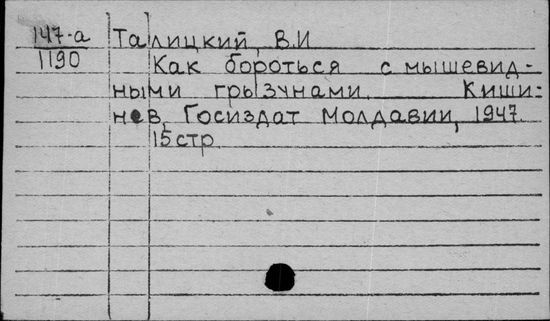 147-а Талицкий, В.И
1190 Как бороться с мышевид-
ными грызунами. Киши-
нев, Госиздат Молдавии, 1947.
15 стр